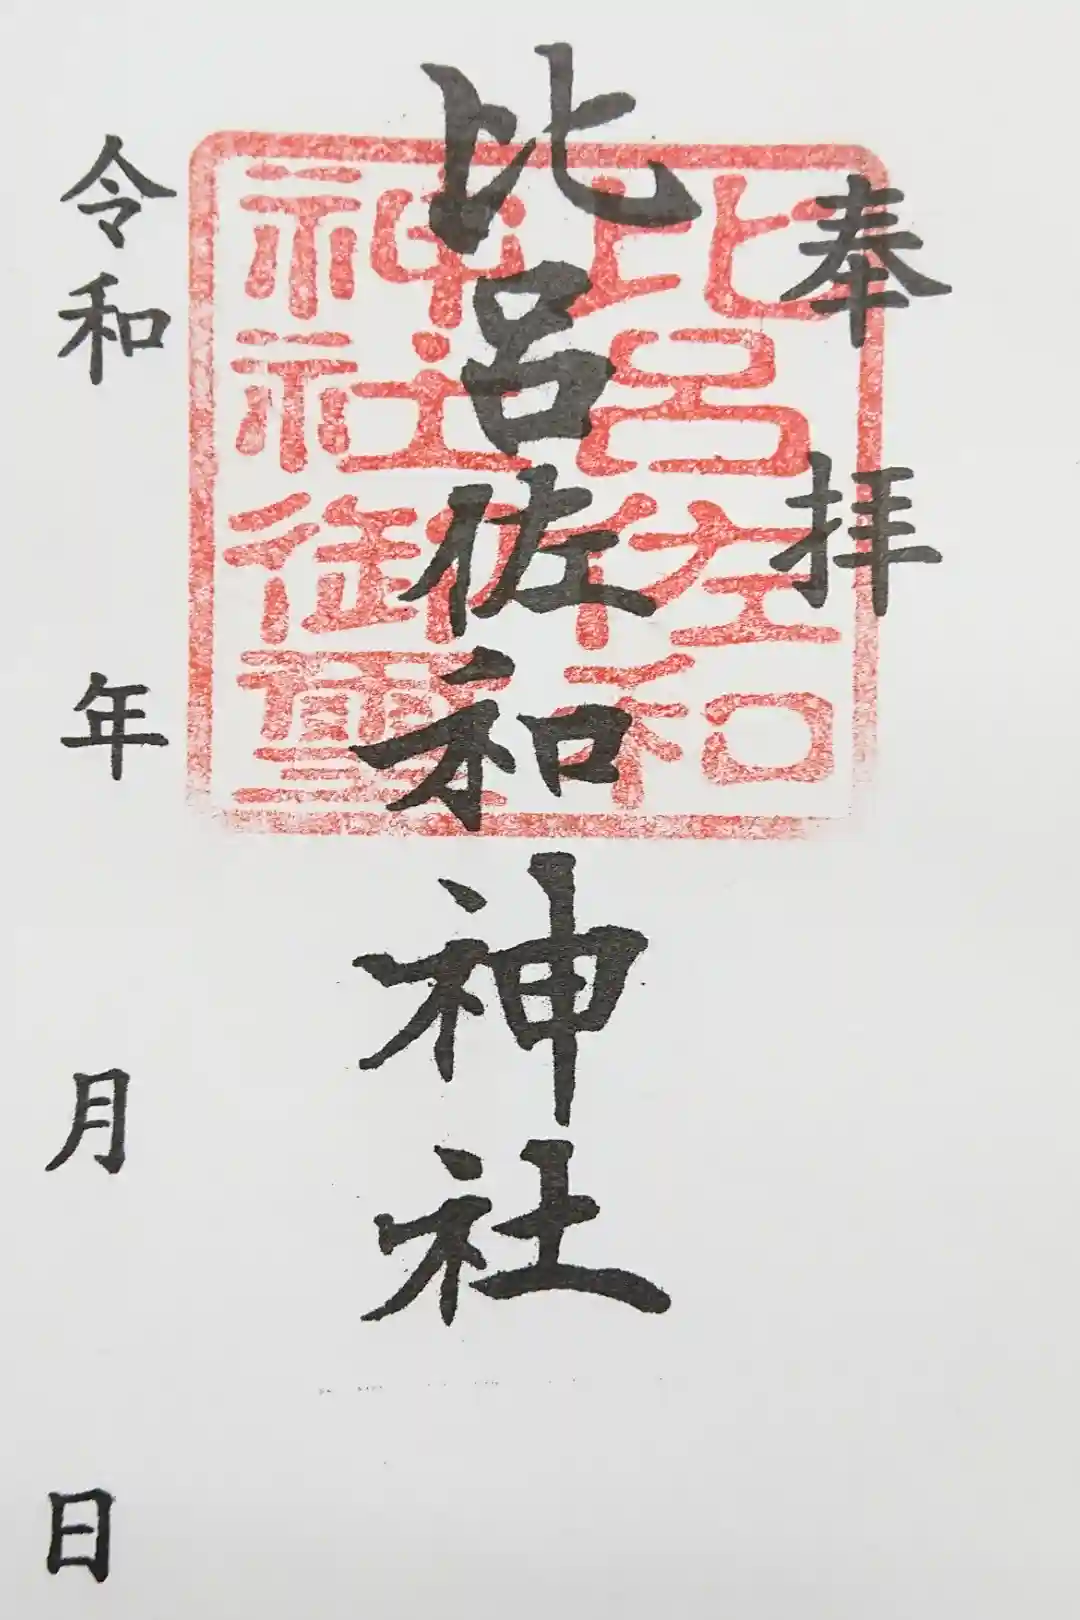 奉拝
比呂佐和神社
比呂佐和
神社御璽
令和 年 月 日